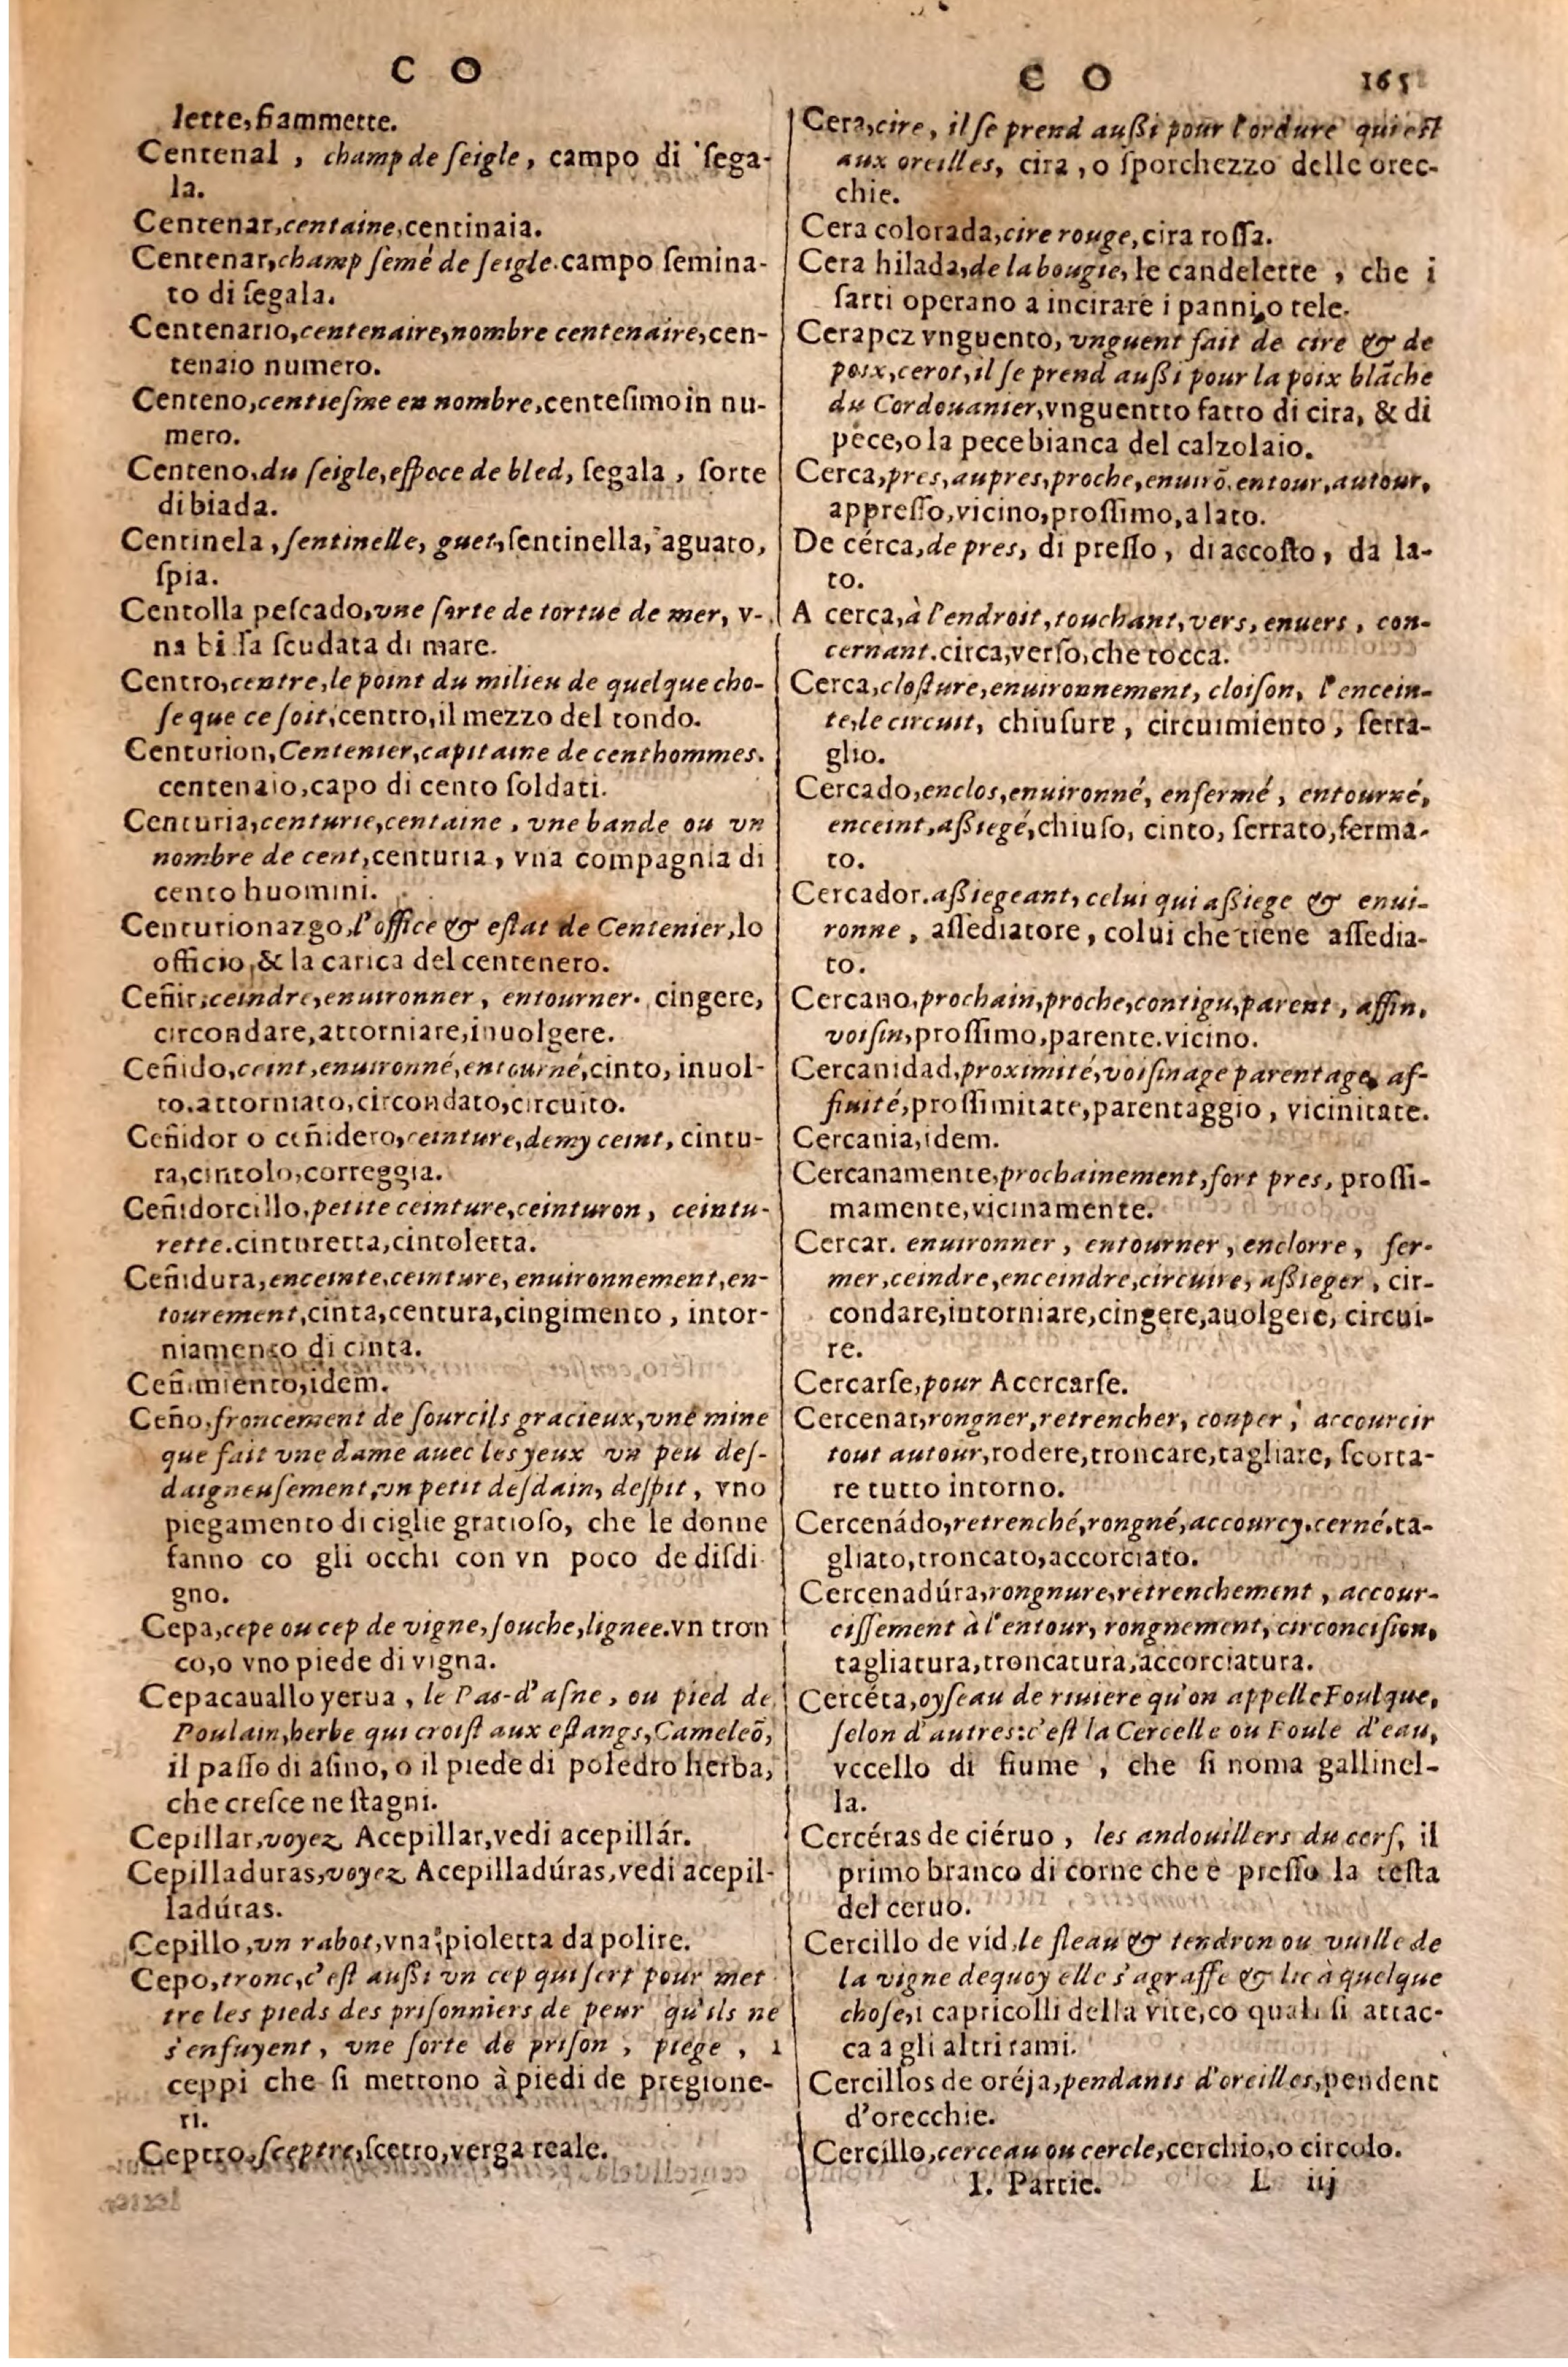 C O
lette, fiammette.
Centenal, champ de ſeigle, campo di ſega-
la.
Centenar, centaine, centinaia.
Centenar, champ ſemé de ſeigle. campo ſemina-
to di ſegala.
Centenario, centenaire, nombre centenaire, cen-
tenaio numero.
Centeno, centieſme en nombre, centeſimo in nu-
mero.
Centeno, du ſeigle, eſpece de bled, ſegala, ſorte
di biada.
Centinela, ſentinelle, guet, ſentinella, aguato,
ſpia.
Centolla peſcado, vne ſorte de tortue de mer, v-
na bi ſa ſcudata di mare.
Centro, centre, le point du milieu de quelque cho-
ſe que ce ſoit, centro, il mezzo del tondo.
Centurion, Centenier, capitaine de cent hommes.
centenaio, capo di cento ſoldati.
Centuria, centurie, centaine, vne bande ou vn
nombre de cent, centuria, vna compagnia di
cento huomini.
Centurionazgo, l'office & eſtat de Centenier, lo
officio, & la carica del centenero.
Ceñir, ceindre, enuironner, entourner. cingere,
circondare, attorniare, inuolgere.
Ceñido, ceint, enuironné, entourné, cinto, inuol-
to. attorniato, circondato, circuito.
Ceñidor o ceñidero, ceinture, demy ceint, cintu-
ra, cintolo, correggia.
Ceñidorcillo, petite ceinture, ceinturon, ceintu-
rette. cinturetta, cintoletta.
Ceñidura, enceinte, ceinture, enuironnement, en-
tourement, cinta, centura, cingimento, intor-
niamento di cinta.
Ceñimiento, idem.
Ceño, froncement de ſourcils gracieux, vne mine
que fait vne dame auec les yeux vn peu deſ-
daigneuſement, vn petit deſdain, deſpit, vno
piegamento di ciglie gratioſo, che le donne
fanno co gli occhi con vn poco de diſdi
gno.
Cepa, cepe ou cep de vigne, ſouche, lignee. vn tron
co, o vno piede di vigna.
Cepacauallo yerua, le Pas-d'aſne, ou pied de
Poulain, herbe qui croiſt aux eſtangs, Cameleõ,
il paſſo di aſino, o il piede di poledro herba,
che creſce ne ſtagni.
Cepillar, voyez Acepillar, vedi acepillár.
Cepilladuras, voyez Acepilladúras, vedi acepil-
ladúras.
Cepillo, vn rabot, vna pioletta da polire.
Cepo, tronc, c'eſt auſſi vn cep qui ſert pour met
tre les pieds des priſonniers de peur qu'ils ne
s'enfuyent, vne ſorte de priſon, piege, i
ceppi che ſi mettono à piedi de pregione-
ri.
Ceptro, ſceptre, ſcetro, verga reale.
C O 165
Cera, cire, il ſe prend auſſi pour l'ordure qui eſt
aux oreilles, cira, o ſporchezzo delle orec-
chie.
Cera colorada, cire rouge, cira roſſa.
Cera hilada, de la bougie, le candelette, che i
ſarti operano a incirare i panni, o tele.
Cerapez vnguento, vnguent fait de cire & de
poix, cerot, il ſe prend auſſi pour la poix blãche
du Cordouanier, vnguentto fatto di cira, & di
pece, o la pece bianca del calzolaio.
Cerca, pres, aupres, proche, enuirõ. entour, autour,
appreſſo, vicino, proſſimo, a lato.
De cérca, de pres, di preſſo, di accoſto, da la-
to.
A cerca, à l'endroit, touchant, vers, enuers, con-
cernant. circa, verſo, che tocca.
Cerca, cloſture, enuironnement, cloiſon, l'encein-
te, le circuit, chiuſure, circuimiento, ſerra-
glio.
Cercado, enclos, enuironné, enfermé, entourné,
enceint, aſſiegé, chiuſo, cinto, ſerrato, ferma-
to.
Cercador. aſſiegeant, celui qui aſſiege & enui-
ronne, aſſediatore, colui che tiene aſſedia-
to.
Cercano, prochain, proche, contigu, parent, affin,
voiſin, proſſimo, parente. vicino.
Cercanidad, proximité, voiſinage parentage, af-
finité, proſſimitate, parentaggio, vicinitate.
Cercania, idem.
Cercanamente, prochainement, fort pres, proſſi-
mamente, vicinamente.
Cercar. enuironner, entourner, enclorre, fer-
mer, ceindre, enceindre, circuire, aſſieger, cir-
condare, intorniare, cingere, auolgere, circui-
re.
Cercarſe, pour Acercarſe.
Cercenar, rongner, retrencher, couper, accourcir
tout autour, rodere, troncare, tagliare, ſcorta-
re tutto intorno.
Cercenádo, retrenché, rongné, accourcy. cerné. ta-
gliato, troncato, accorciato.
Cercenadúra, rongnure, retrenchement, accour-
ciſſement à l'entour, rongnement, circonciſion,
tagliatura, troncatura, accorciatura.
Cercéta, oyſeau de riuiere qu'on appelle Foulque,
ſelon d'autres: c'eſt la Cercelle ou Foule d'eau,
vccello di fiume, che ſi noma gallinel-
la.
Cercéras de ciéruo, les andouillers du cerf, il
primo branco di corne che è preſſo la teſta
del ceruo.
Cercillo de vid, le fleau & tendron ou vuille de
la vigne dequoy elle s'agraffe & lie à quelque
choſe, i capricolli della vite, co quali ſi attac-
ca a gli altri rami.
Cercillos de oréja, pendants d'oreilles, pendent
d'orecchie.
Cercíllo, cerceau ou cercle, cerchio, o circolo.
I. Partie. L iij